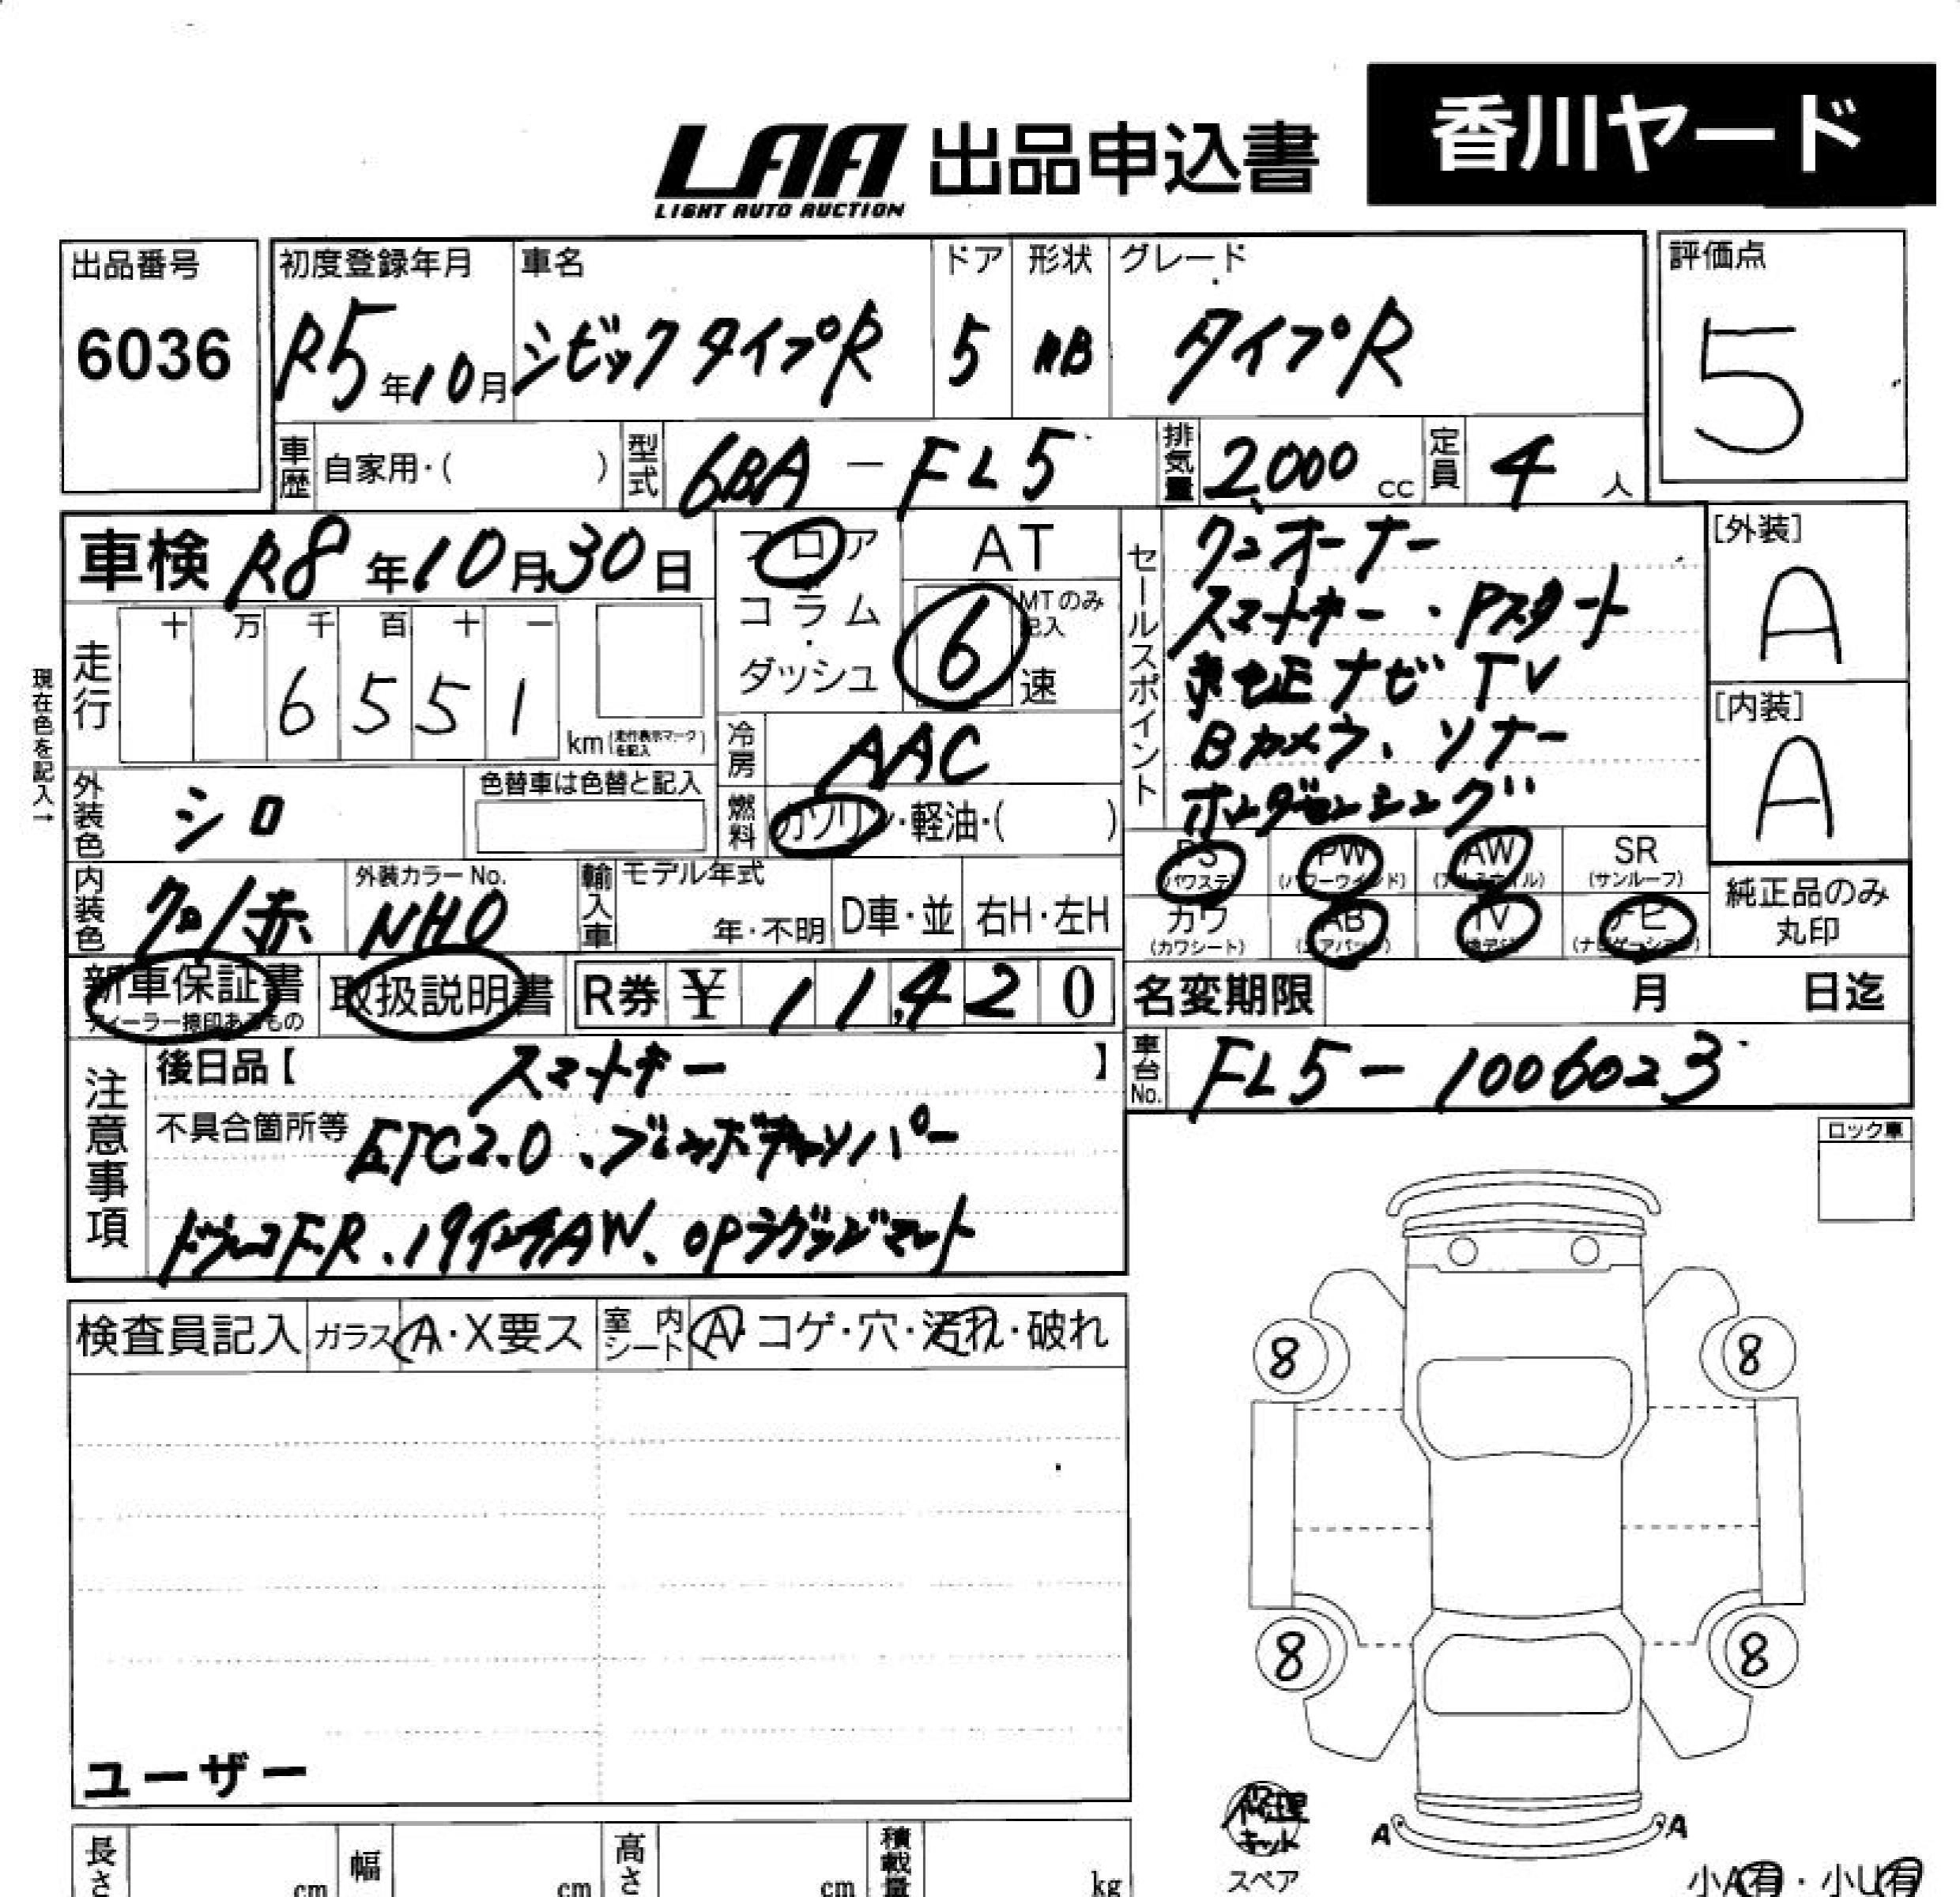 LAA 出品申込書 香川ヤード
LIGHT AUTO AUCTION
出品番号 初度登録年月 車名 ドア 形状 グレード 評価点
6036 R5年10月 シビックタイプR 5 HB タイプR 5
車歴 自家用・( ) 型式 6BA-FL5 排気量 2,000 cc 定員 4 人
車検 R8年10月30日 フロア AT
コラム
・
ダッシュ
6 速 MTのみ記入
走行 十 万 千 百 十 一
6 5 5 1 km(走行表示マークを記入)
現在色を記入→
冷房 AAC
外装色 シロ 色替車は色替と記入
燃料 ガソリン・軽油・( )
内装色 クロ/赤 外装カラーNo. NHO
輸入車 モデル年式 年・不明 D車・並 右H・左H
セールスポイント ワンオーナー
スマートキー・Pスタート
純正ナビ TV
Bカメラ、ソナー
ホンダセンシング
[外装]
A
[内装]
A
PS PW AW SR
(パワステ) (パワーウインド) (アルミホイル) (サンルーフ)
カワ AB TV ナビ
(カワシート) (エアバッグ) (ナビゲーション)
純正品のみ
丸印
新車保証書 取扱説明書 R券 ¥ 11,420
ディーラー捺印あるもの
名変期限 月 日迄
車台No. FL5-1006023
注意事項 後日品【 スマートキー 】
不具合箇所等 ETC2.0、
ドラレコF.R、19インチAW、OPラゲッジマット
ロック車
検査員記入 ガラス A・X要ス 室内シート A・コゲ・穴・汚れ・破れ
8 8
8 8
ユーザー
修理
キット
スペア
A A
小A有・小U有
長さ cm 幅 cm 高さ cm 積載量 kg